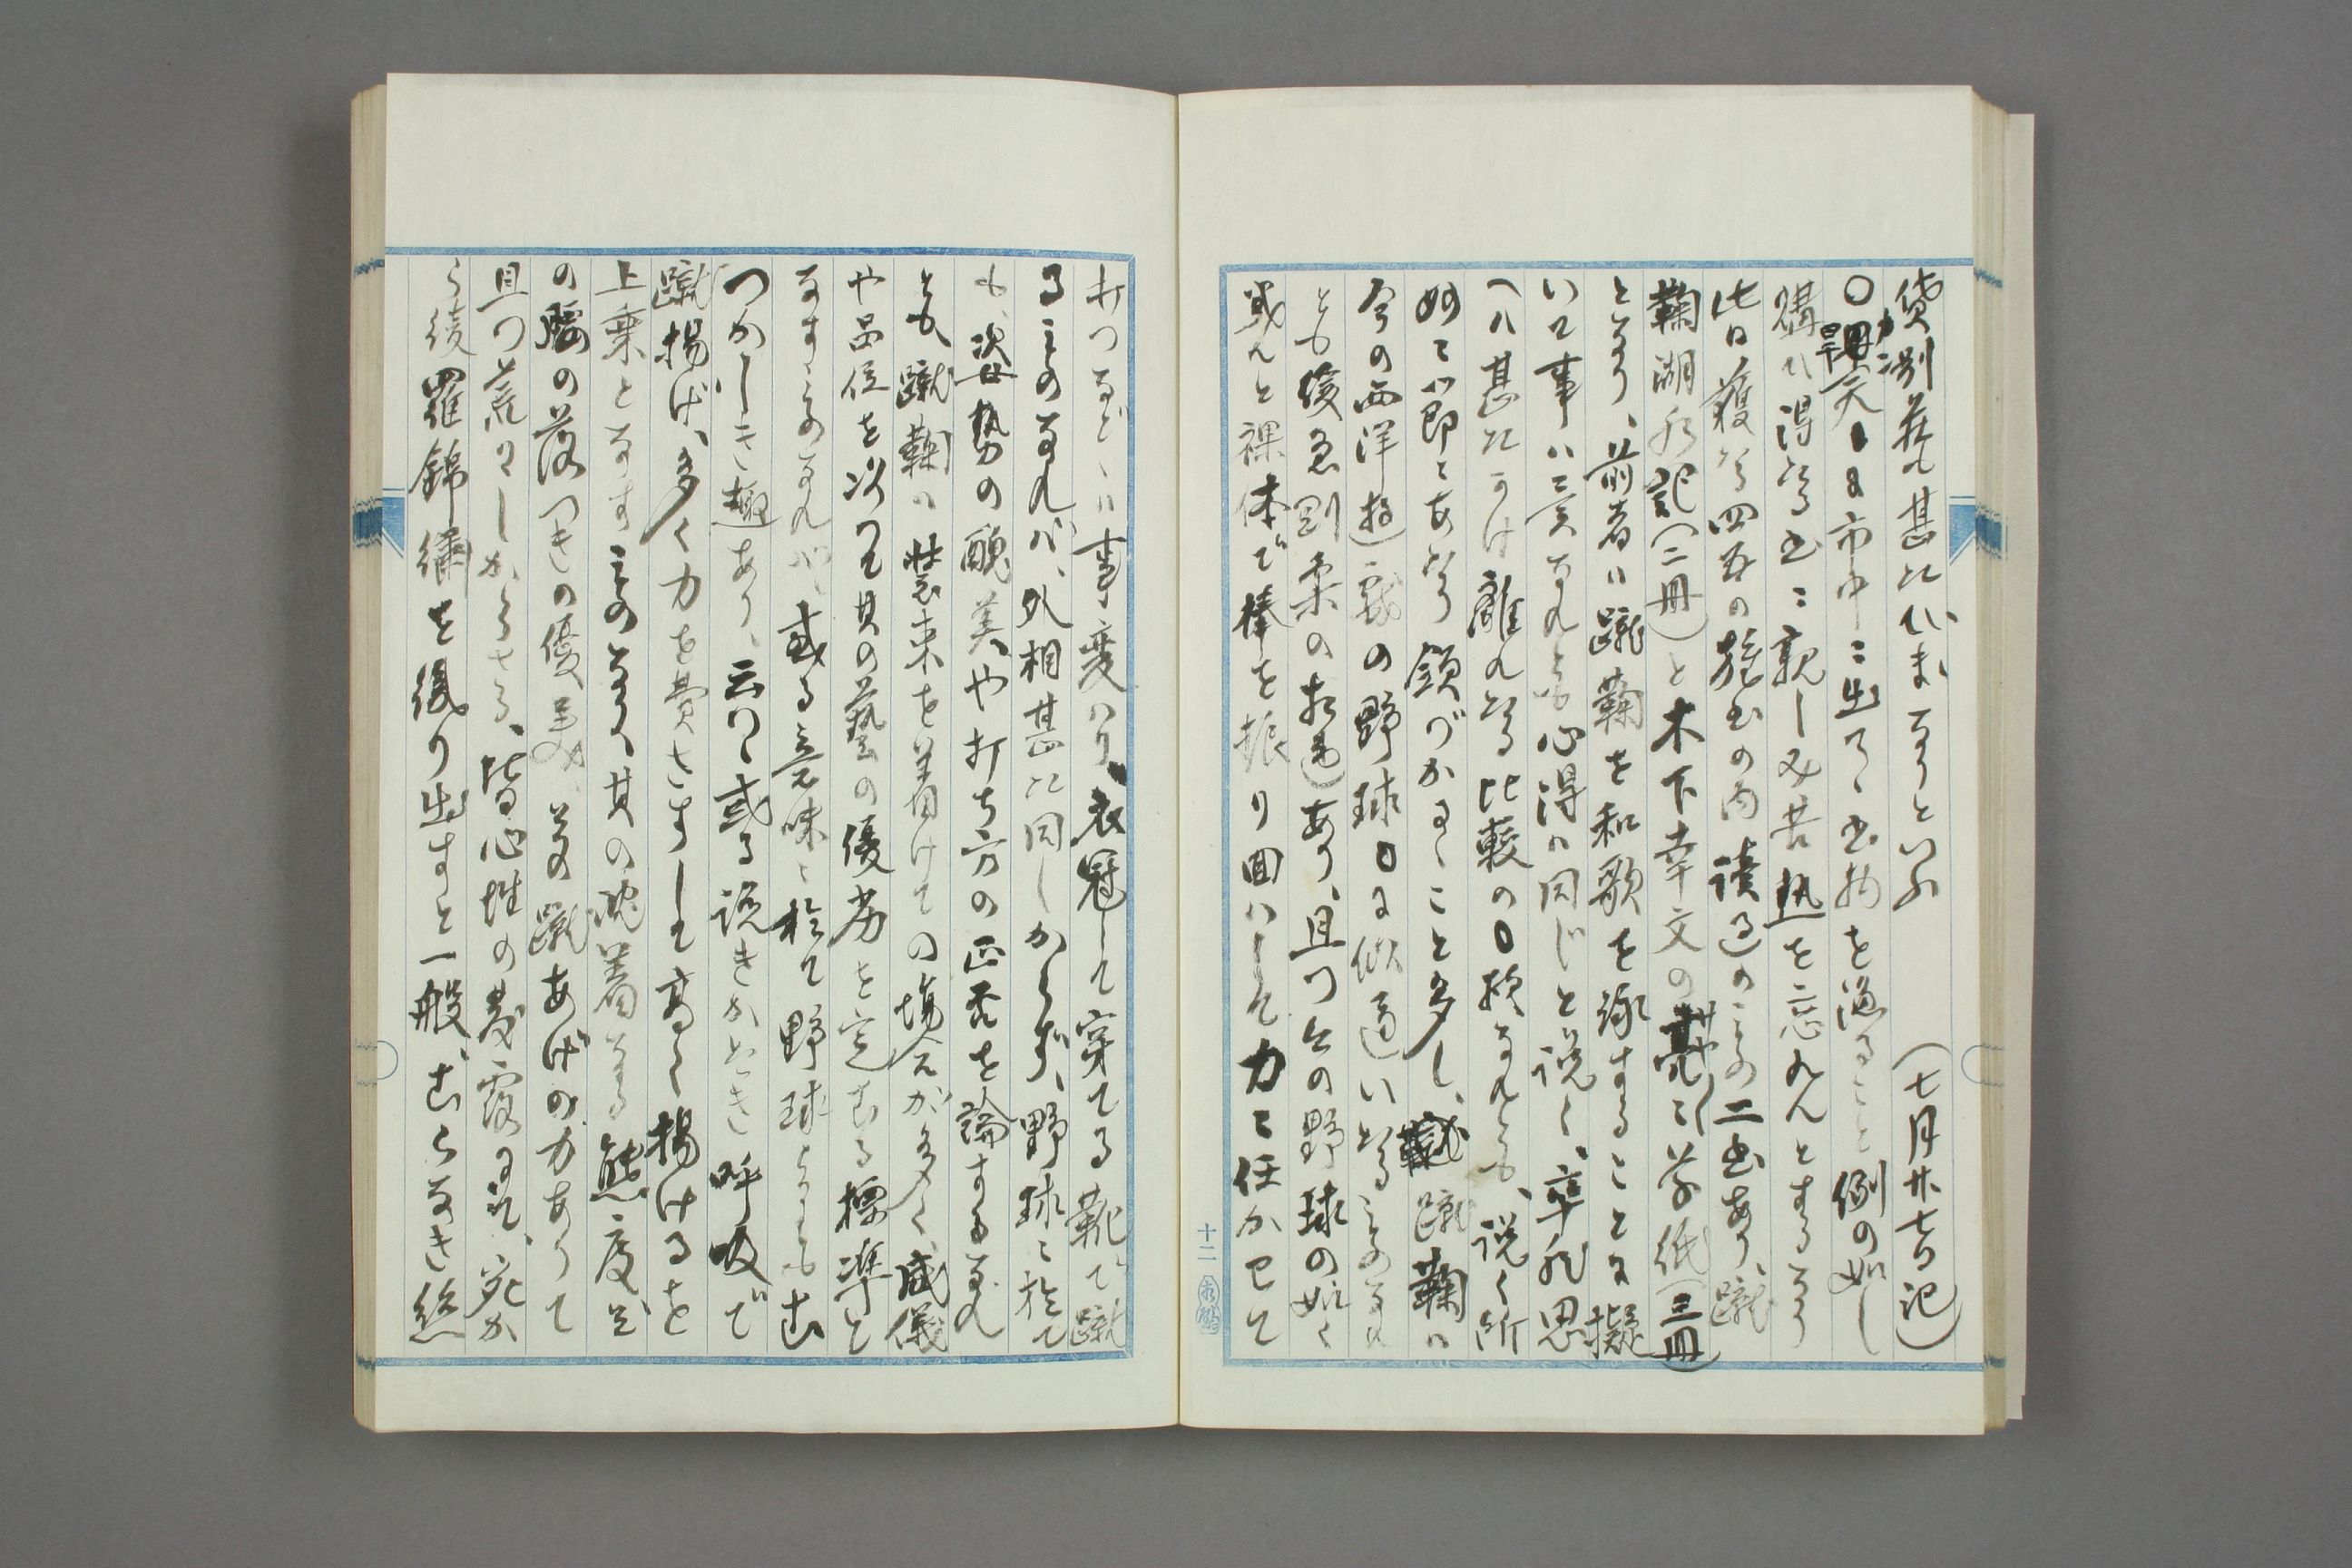 貸別荘も甚だひまなりといふ (七月廿七日記)
〇旱天 日々市中ニ出て、書物を漁ること例の如し
購ひ得たる書ニ親しみ苦熱を忘れんとするなり
此日獲たる四五の雑書の内読過のもの二書あり、蹴
鞠湖水記(二冊)と木下幸文の亮々草紙(三冊)
となり、前者ハ蹴鞠を和歌を詠することに擬
いて事ハ異なれとも心得ハ同じと説く、卒然思
へハ甚だかけ離れたる比較の様なれとも、説く所
妙ニ即ニあたり頷づかるゝこと多し、蹴鞠ハ
今の西洋遊戯の野球に似通いたるものなれ
とも緩急剛柔の相違あり、且つ今の野球の如く
半裸体で棒を振り回ハして力ニ任かせて
打つなどゝハ事変ハり、衣冠して穿てる靴で蹴
るものなれバ、外相甚だ同しからず、野球ニ於て
も、姿勢の醜美や打ち方の正否を論ずるなれ
とも、蹴鞠ハ装束を着けての場合が多く、威儀
や品位を以つて其の藝の優劣を定むる標準と
なすものなれバ、或る意味ニ於て野球よりもむ
つかしき趣あり、云はゝ或る説きかたき呼吸で
蹴揚げ、多く力を費さすして高く揚けるを
上乗となすものなり、其の沈着なる態度と
の腰の落つきの優美、其蹴あげの力ありて
且つ荒々しからさる、皆心性の発露にて、宛か
も綾羅錦繍を織り出すと一般、むらなき絲
十二